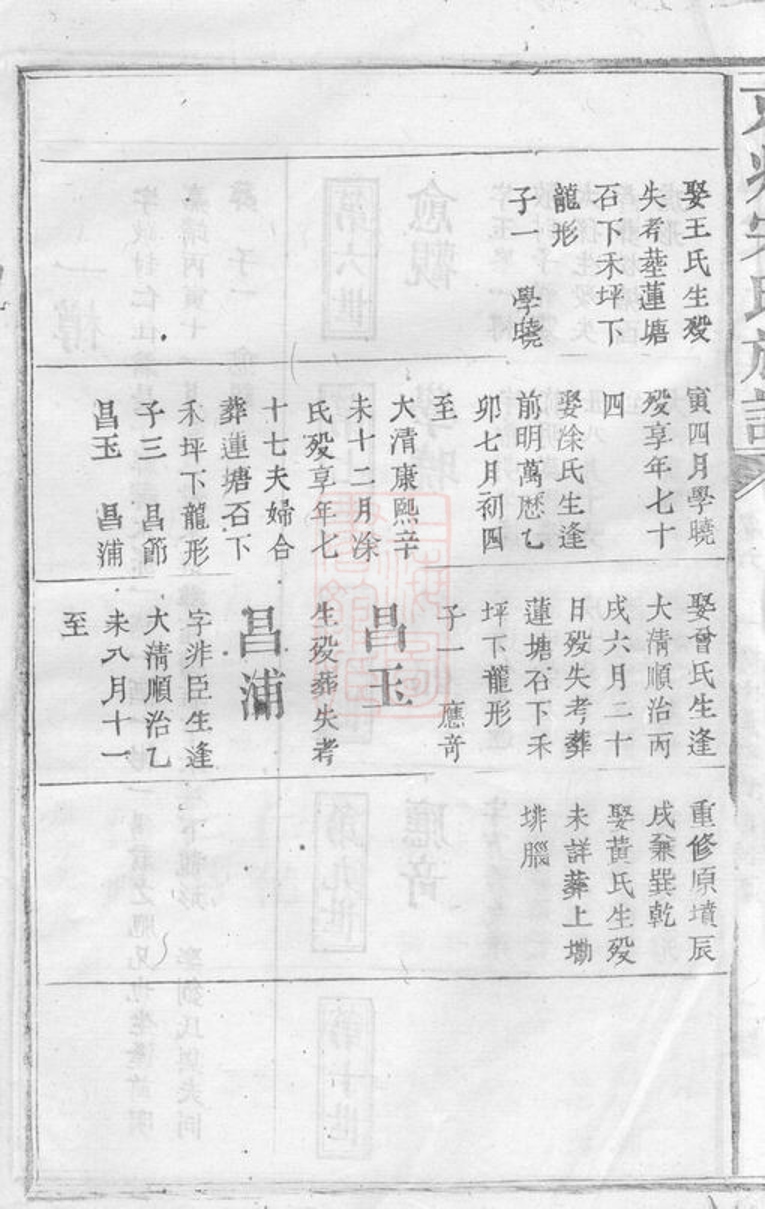 娶王氏生殁
失考塟蓮塘
石下禾坪下
龍形
子一 學曉
寅四月學曉
殁享年七十
四
娶涂氏生逢
前明萬歷乙
卯七月初四
至
大清康熙辛
未十二月涂
氏殁享年七
十七夫婦合
葬蓮塘石下
禾坪下龍形
子三 昌節
昌玉 昌浦
娶曾氏生逢
大清順治丙
戌六月二十
日殁失考葬
蓮塘石下禾
坪下龍形
子一 應奇
昌玉
生殁葬失考
昌浦
字非臣生逢
大清順治乙
未八月十一
至
重修原墳辰
戌兼巽乾
娶黃氏生殁
未詳葬上塅
排腦